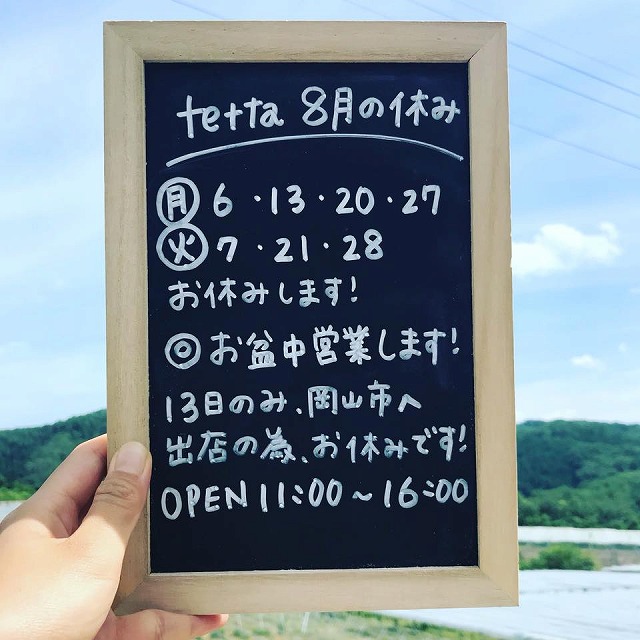 tetta 8月の休み
月 6・13・20・27
火 7・21・28
お休みします!
◎お盆中営業します!
13日のみ、岡山市へ
出店の為、お休みです!
OPEN 11:00〜16:00